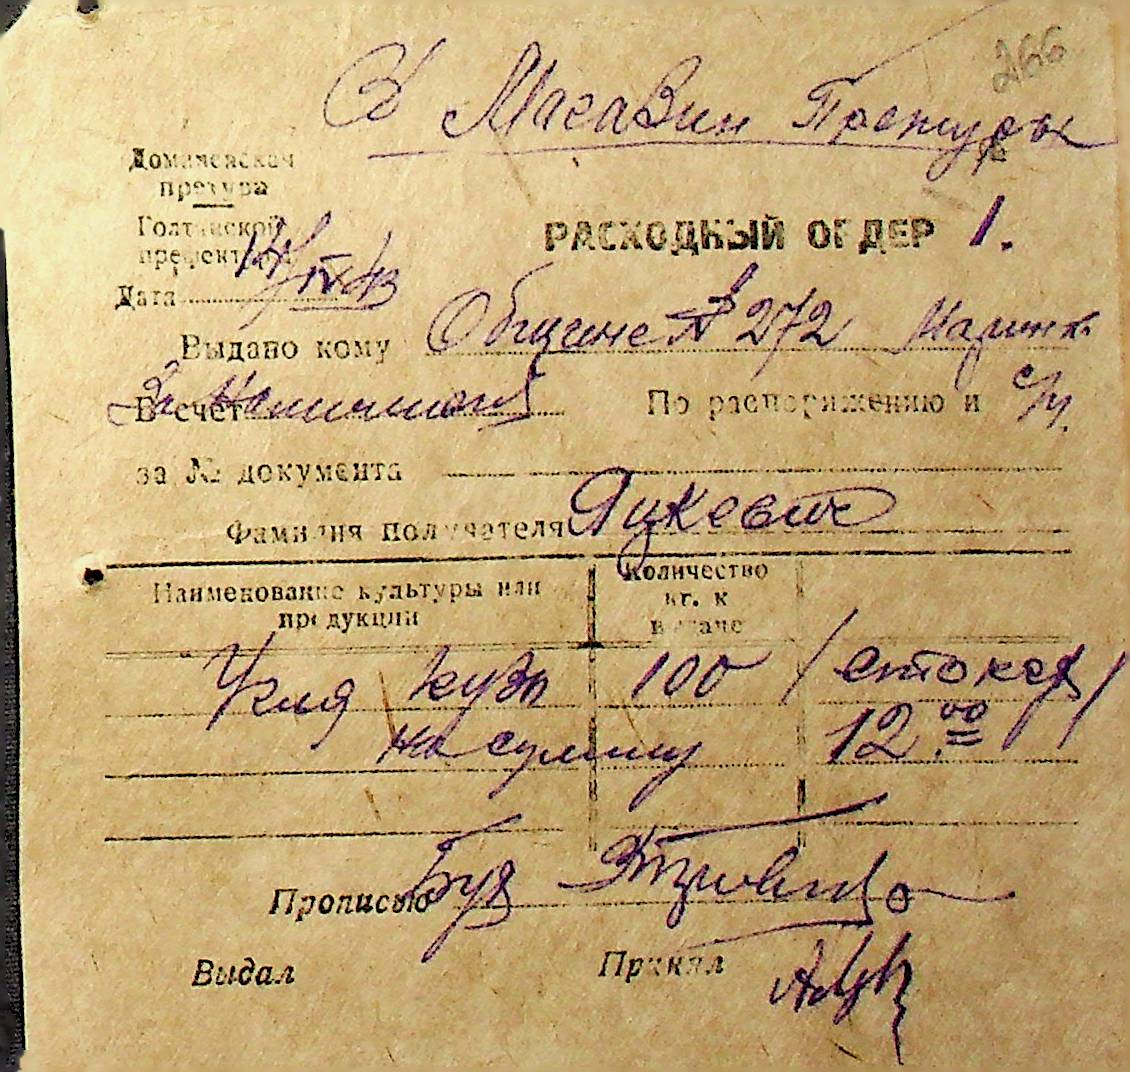 266
Претуры
Доманевская
претура
Голтянской
префектуры
РАСХОДНЫЙ ОРДЕР 1.
Дата 14/IX 43
Выдано кому Общине № 272
В счет По распоряжению и с/ч.
за № документа
Фамилия получателя Яцкевич
Наименование культуры или
продукции
Количество
кг. к
выдаче
100 /сто кгр/
на сумму 12.00
Прописью Бух
Выдал Принял